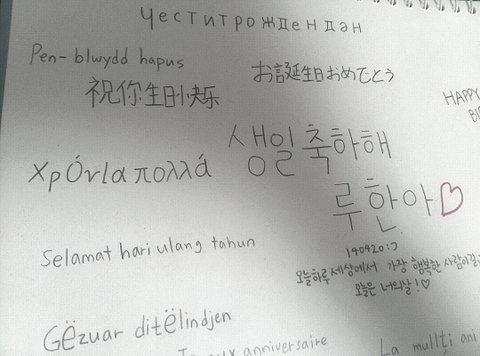 Честитрожденден
Pen-blwydd hapus
お誕生日おめでとう
祝你生日快乐
HAPPY
생일축하해
루한아♡
Χρόνια πολλά
140420:7
Selamat hari ulang tahun
오늘하루 세상에서 가장 행복한 사람이길
오늘은 너의날!♡
Gëzuar ditëlindjen
anniversaire
La mulţi ani